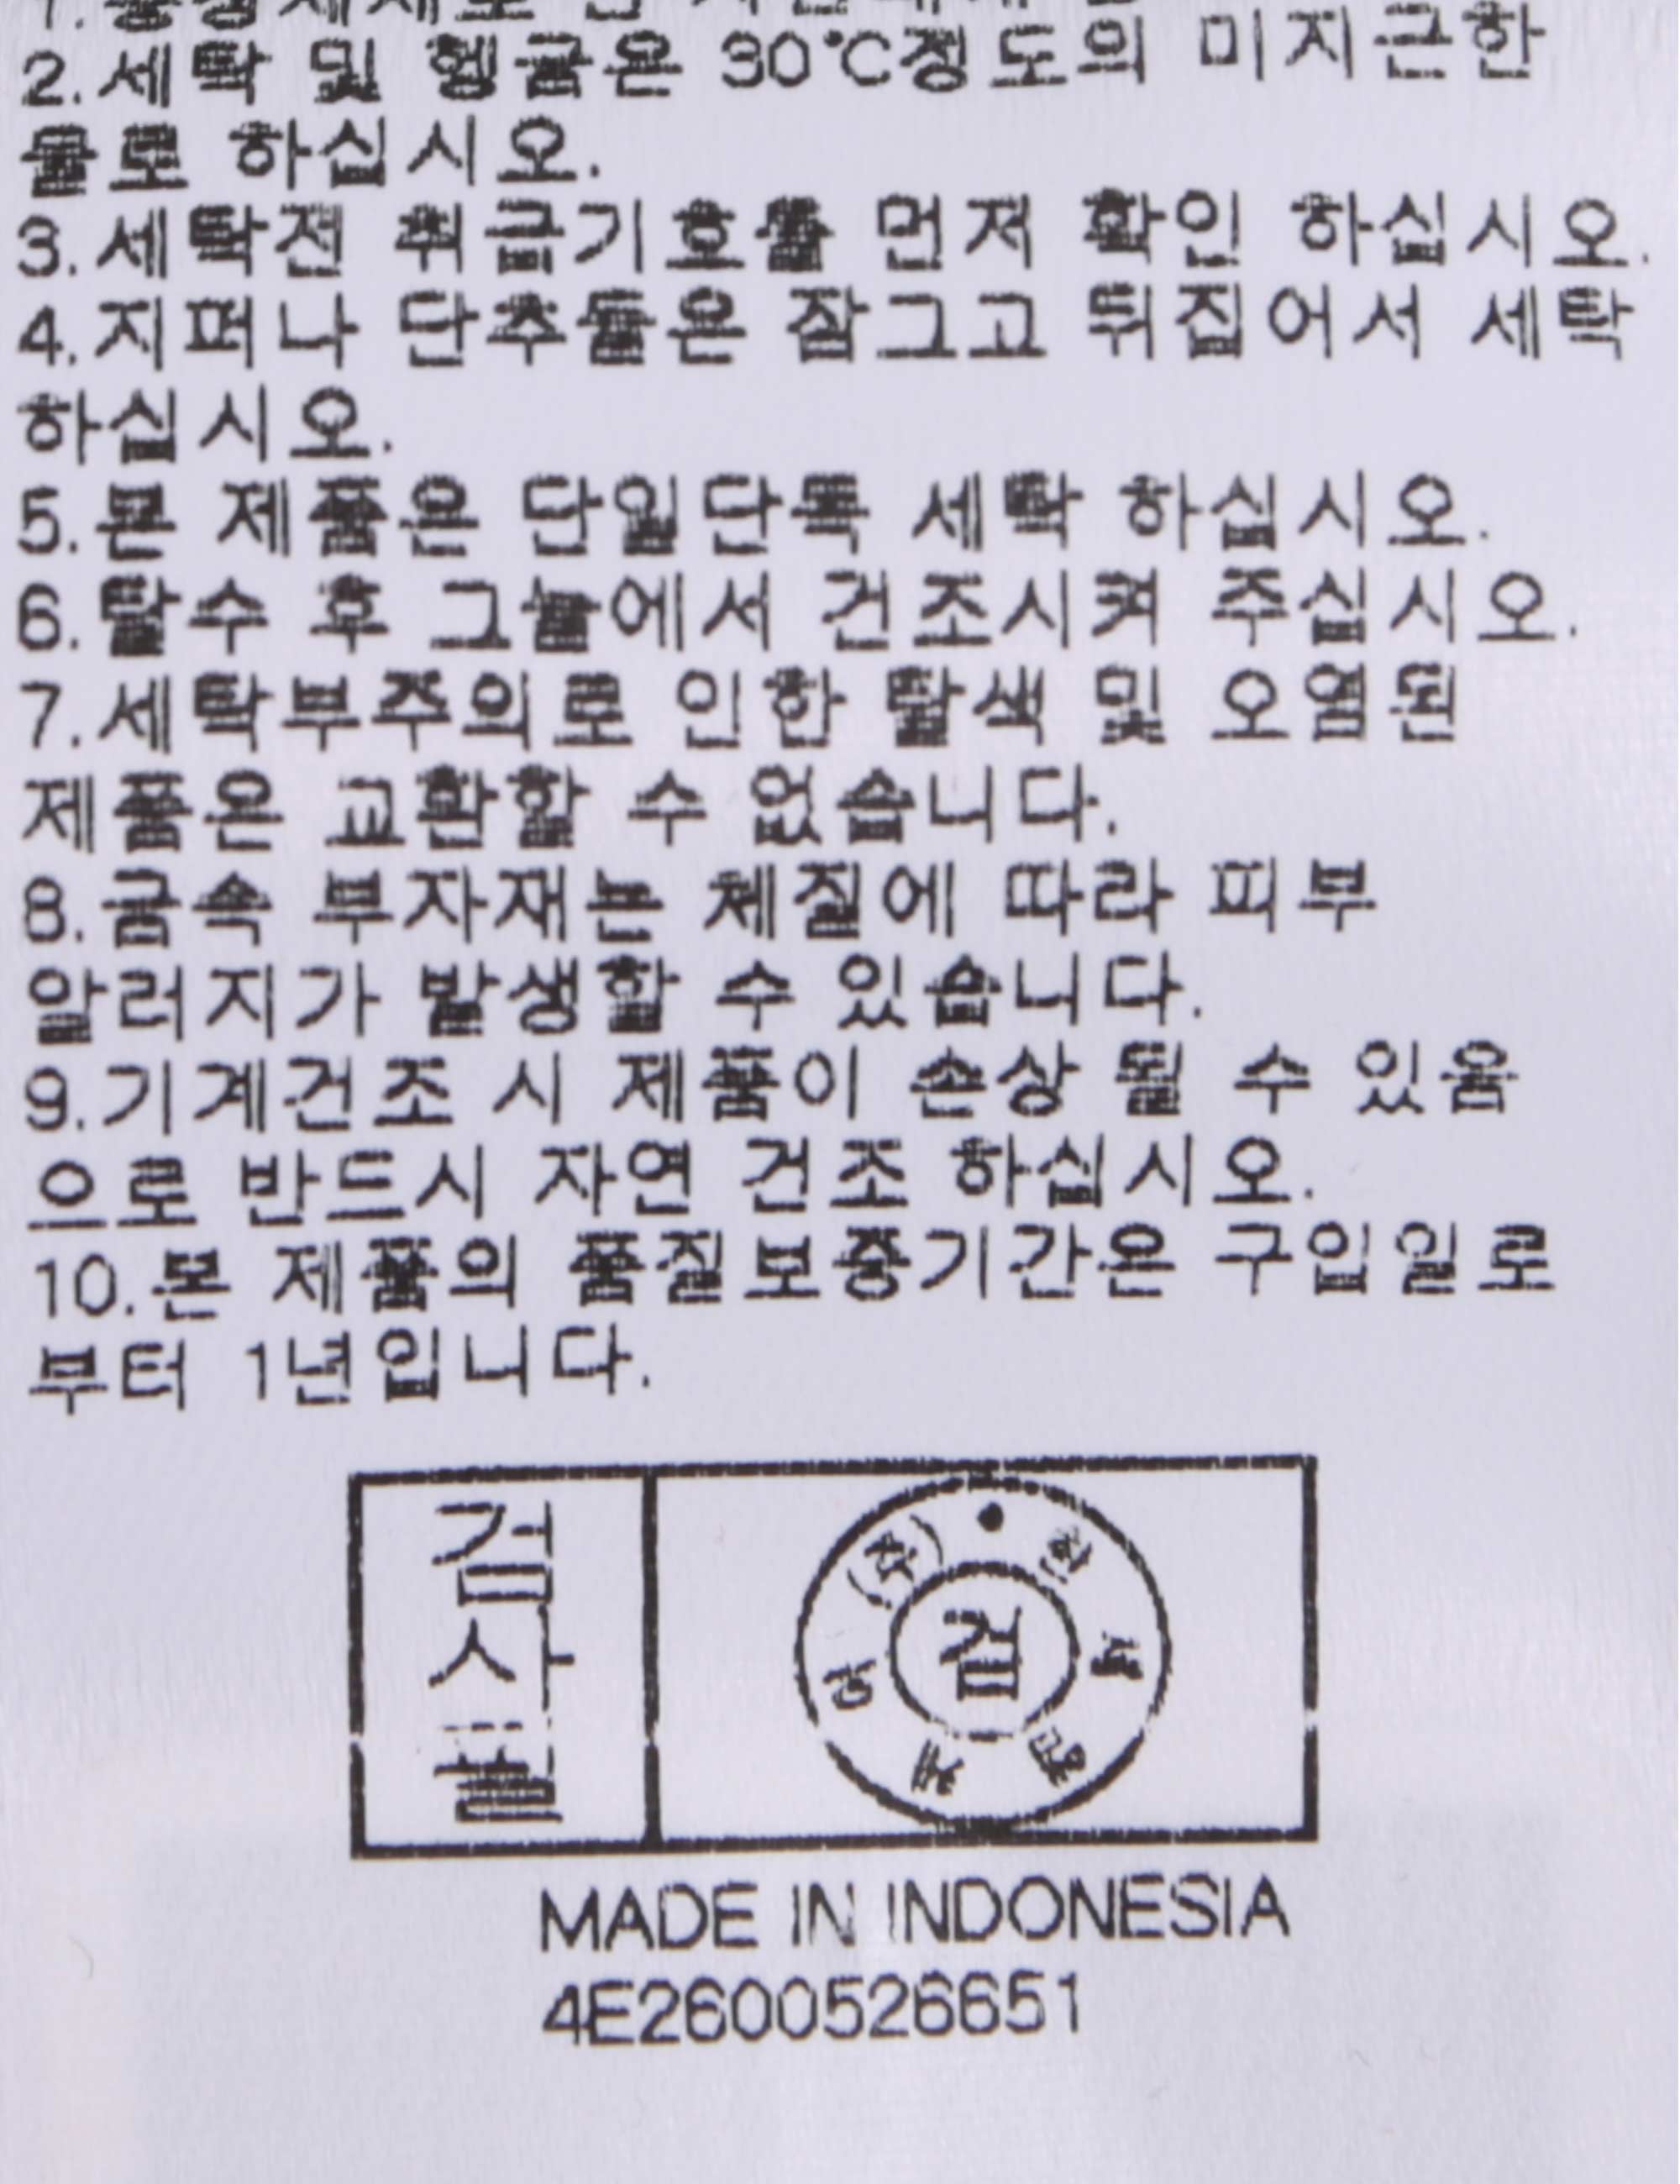 2.세탁 및 헹굼은 30°C정도의 미지근한
물로 하십시오.
3.세탁전 취급기호를 먼저 확인 하십시오.
4.지퍼나 단추들은 잠그고 뒤집어서 세탁
하십시오.
5.본 제품은 단일단독 세탁 하십시오.
6.탈수 후 그늘에서 건조시켜 주십시오.
7.세탁부주의로 인한 탈색 및 오염된
제품은 교환할 수 없습니다.
8.금속 부자재는 체질에 따라 피부
알러지가 발생할 수 있습니다.
9.기계건조 시 제품이 손상 될 수 있움
으로 반드시 자연 건조 하십시오.
10.본 제품의 품질보증기간은 구입일로
부터 1년입니다.
검사필
(주)한세엠케이
검
MADE IN INDONESIA
4E2600526651